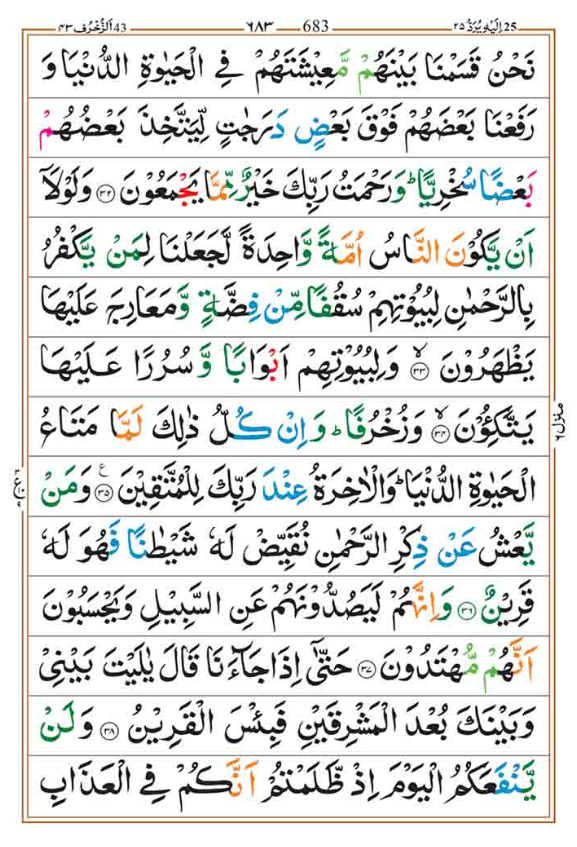 25 اِلَیْهِ یُرَدُّ ۲۵ 683 ۶۸۳ 43 اَلزُّخْرُف ۴۳
نَحْنُ قَسَمْنَا بَیْنَهُمْ مَّعِیْشَتَهُمْ فِی الْحَیٰوةِ الدُّنْیَا وَ
رَفَعْنَا بَعْضَهُمْ فَوْقَ بَعْضٍ دَرَجٰتٍ لِّیَتَّخِذَ بَعْضُهُمْ
بَعْضًا سُخْرِیًّا ؕ وَرَحْمَتُ رَبِّكَ خَیْرٌ مِّمَّا یَجْمَعُوْنَ ﴿۳۲﴾ وَلَوْلَاۤ
اَنْ یَّكُوْنَ النَّاسُ اُمَّةً وَّاحِدَةً لَّجَعَلْنَا لِمَنْ یَّكْفُرُ
بِالرَّحْمٰنِ لِبُیُوْتِهِمْ سُقُفًا مِّنْ فِضَّةٍ وَّمَعَارِجَ عَلَیْهَا
یَظْهَرُوْنَ ﴿۳۳﴾ۙ وَلِبُیُوْتِهِمْ اَبْوَابًا وَّ سُرُرًا عَلَیْهَا
یَتَّكِـُٔوْنَ ﴿۳۴﴾ۙ وَزُخْرُفًا ؕ وَاِنْ كُلُّ ذٰلِكَ لَمَّا مَتَاعُ
الْحَیٰوةِ الدُّنْیَا ؕ وَالْاٰخِرَةُ عِنْدَ رَبِّكَ لِلْمُتَّقِیْنَ ﴿۳۵﴾ۧ وَمَنْ
یَّعْشُ عَنْ ذِكْرِ الرَّحْمٰنِ نُقَیِّضْ لَهٗ شَیْطٰنًا فَهُوَ لَهٗ
قَرِیْنٌ ﴿۳۶﴾ وَاِنَّهُمْ لَیَصُدُّوْنَهُمْ عَنِ السَّبِیْلِ وَیَحْسَبُوْنَ
اَنَّهُمْ مُّهْتَدُوْنَ ﴿۳۷﴾ حَتّٰۤی اِذَا جَآءَنَا قَالَ یٰلَیْتَ بَیْنِیْ
وَبَیْنَكَ بُعْدَ الْمَشْرِقَیْنِ فَبِئْسَ الْقَرِیْنُ ﴿۳۸﴾ وَلَنْ
یَّنْفَعَكُمُ الْیَوْمَ اِذْ ظَّلَمْتُمْ اَنَّكُمْ فِی الْعَذَابِ
منزل ۶